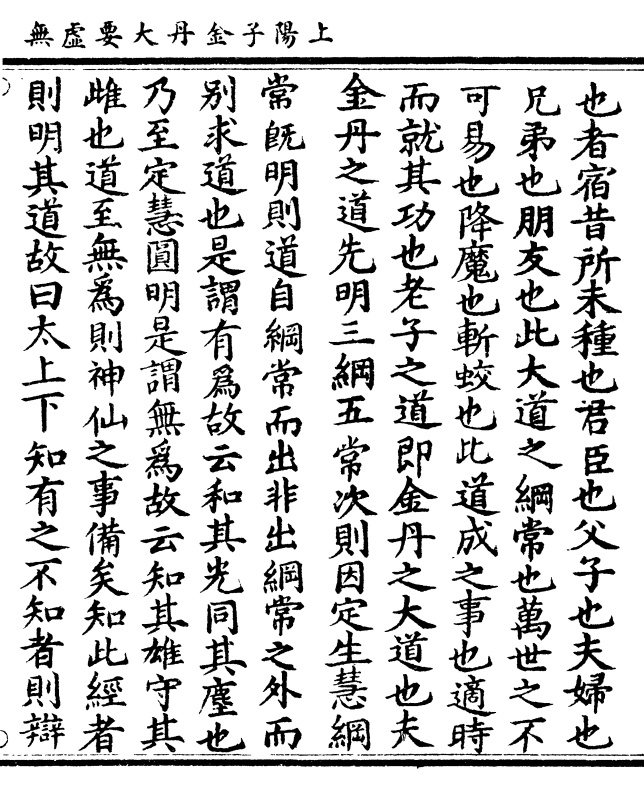 上陽子金丹大要虛無
也者宿昔所未種也君臣也父子也夫婦也
兄弟也朋友也此大道之綱常也萬世之不
可易也降魔也斬蛟也此道成之事也適時
而就其功也老子之道即金丹之大道也夫
金丹之道先明三綱五常次則因定生慧綱
常既明則道自綱常而出非出綱常之外而
别求道也是謂有爲故云和其光同其塵也
乃至定慧圓明是謂無爲故云知其雄守其
雌也道至無爲則神仙之事備矣知此經者
則明其道故曰太上下知有之不知者則辯